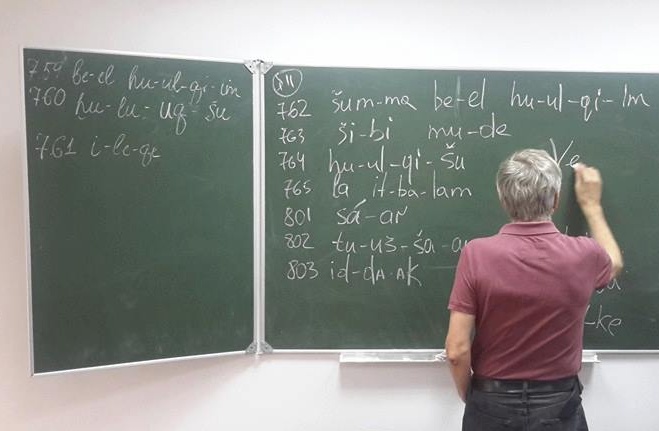 759 be-el hu-ul-qi-im
760 hu-lu-uq-šu
761 i-le-qe
§11
762 šum-ma be-el hu-ul-qi-im
763 ši-bi mu-de
764 hu-ul-qi-šu
765 la it-ba-lam
801 sá-ar
802 tu-uš-ša-
803 id-da-ak
Ve
-ke